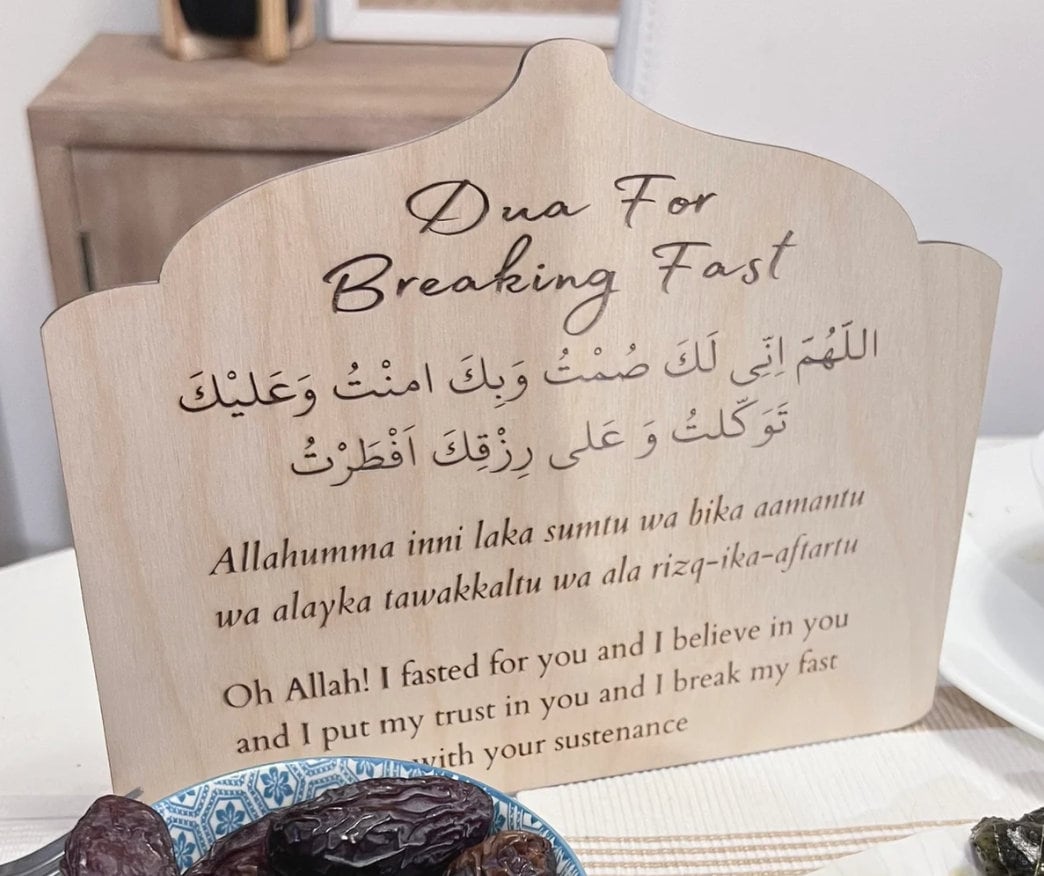 Dua For
Breaking Fast
اللَّهُمَ اِنِّى لَكَ صُمْتُ وَبِكَ امنْتُ وَعَليْكَ
تَوَكَّلتُ وَ عَلى رِزْقِكَ اَفْطَرْتُ
Allahumma inni laka sumtu wa bika aamantu
wa alayka tawakkaltu wa ala rizq-ika-aftartu
Oh Allah! I fasted for you and I believe in you
and I put my trust in you and I break my fast
with your sustenance